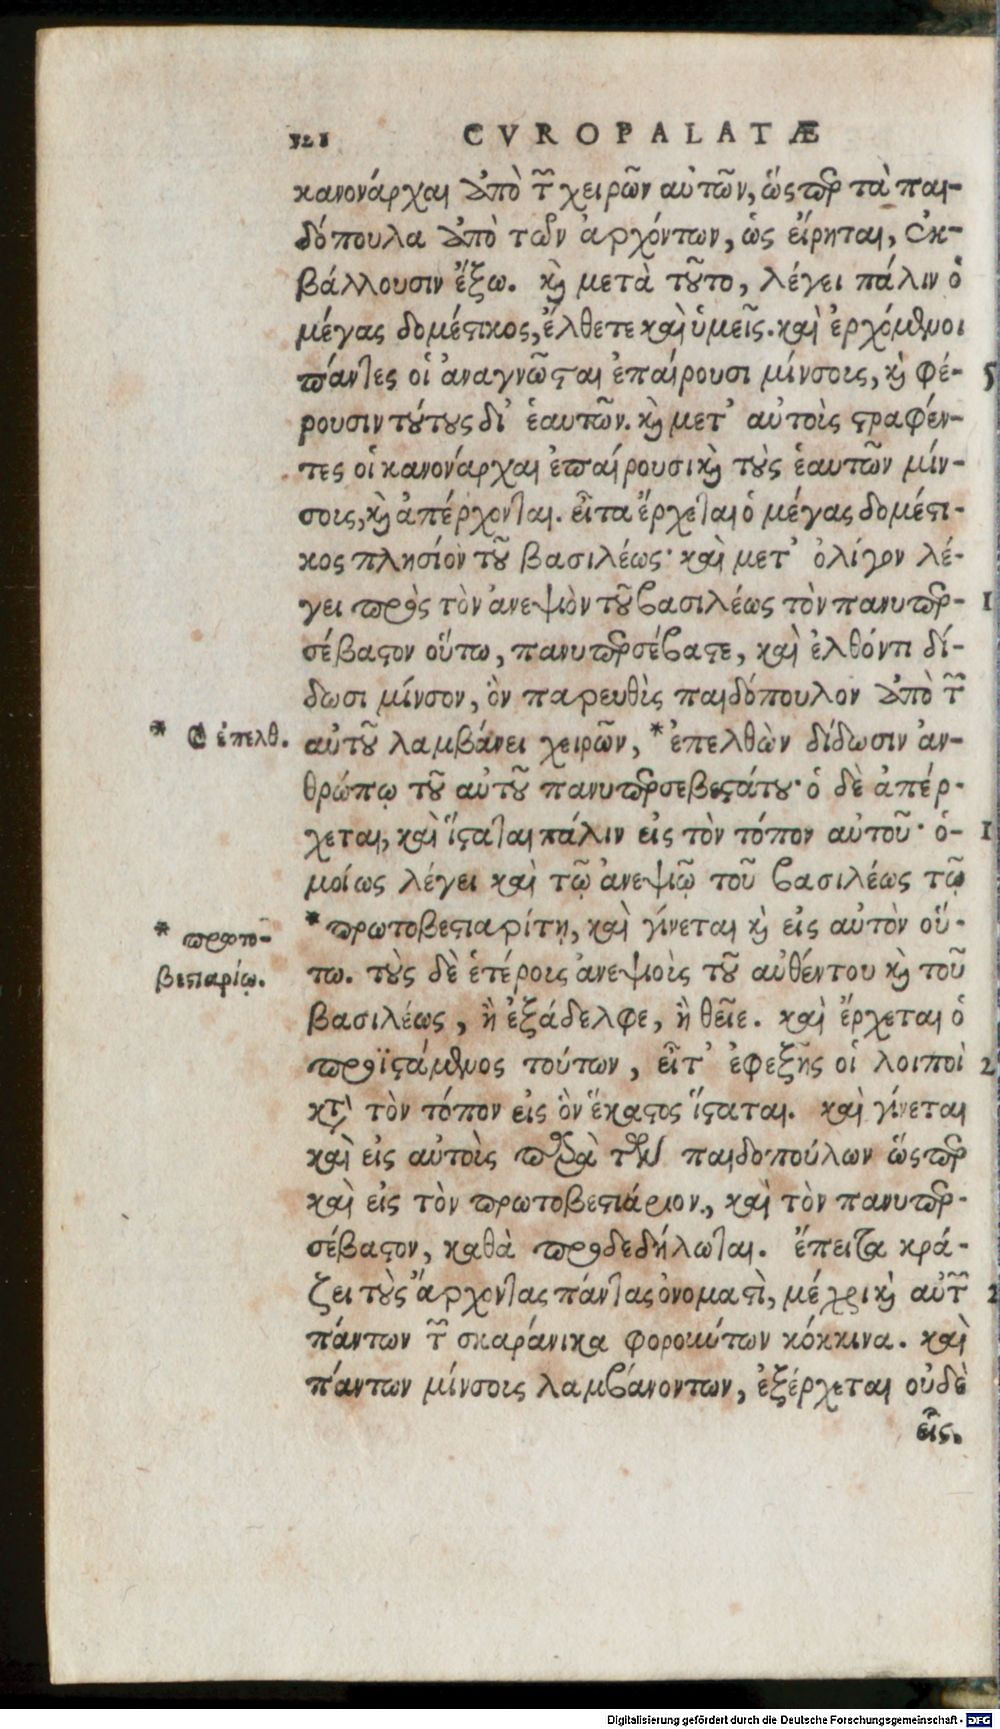 CVROPALATÆ
κανονάρχαι ἀπὸ τῶν χειρῶν αὐτῶν, ὥςπερ τὰ παι-
δόπουλα ἀπὸ τῶν ἀρχόντων, ὡς εἴρηται, ἐκ-
βάλλουσιν ἔξω. καὶ μετὰ τοῦτο, λέγει πάλιν ὁ
μέγας δομέστικος, ἔλθετε καὶ ὑμεῖς. καὶ ἐρχόμενοι
πάντες οἱ ἀναγνῶσται ἐπαίρουσι μίνσοις, καὶ φέ- 5
ρουσιν τούτους δι' ἑαυτῶν. καὶ μετ' αὐτοὶς στραφέν-
τες οἱ κανονάρχαι ἐπαίρουσι καὶ τοὺς ἑαυτῶν μίν-
σοις, καὶ ἀπέρχονται. εἶτα ἔρχεται ὁ μέγας δομέστι-
κος πλησίον τοῦ βασιλέως· καὶ μετ' ὀλίγον λέ-
γει πρὸς τὸν ἀνεψιὸν τοῦ βασιλέως τὸν πανυπερ- 1
σέβαστον οὕτω, πανυπερσέβαστε, καὶ ἐλθόντι δί-
δωσι μίνσον, ὃν παρευθὺς παιδόπουλον ἀπὸ τῶν
* C ἐπελθ. αὐτοῦ λαμβάνει χειρῶν, *ἐπελθὼν δίδωσιν ἀν-
θρώπῳ τοῦ αὐτοῦ πανυπερσεβεστάτου· ὁ δὲ ἀπέρ-
χεται, καὶ ἵσταται πάλιν εἰς τὸν τόπον αὐτοῦ· ὁ- 1
μοίως λέγει καὶ τῷ ἀνεψιῷ τοῦ βασιλέως τῷ
* πρωτο- *πρωτοβεστιαρίτῃ, καὶ γίνεται καὶ εἰς αὐτὸν οὕ-
βεστιαρίῳ. τω. τοὺς δὲ ἑτέροις ἀνεψιοὶς τοῦ αὐθέντου καὶ τοῦ
βασιλέως, ἢ ἐξάδελφε, ἢ θεῖε. καὶ ἔρχεται ὁ
προϊστάμενος τούτων, εἶτ' ἐφεξῆς οἱ λοιποὶ 2
κατὰ τὸν τόπον εἰς ὃν ἕκαστος ἵσταται. καὶ γίνεται
καὶ εἰς αὐτοὶς παρὰ τῶν παιδοπούλων ὥςπερ
καὶ εἰς τὸν πρωτοβεστιάριον, καὶ τὸν πανυπερ-
σέβαστον, καθὰ προδεδήλωται. ἔπειτα κρά-
ζει τοὺς ἄρχοντας πάντας ὀνομαστὶ, μέχρι καὶ αὐτῶν 2
πάντων τῶν σκαράνικα φορούντων κόκκινα. καὶ
πάντων μίνσοις λαμβάνοντων, ἐξέρχεται οὐδὲ
εἷς.
Digitalisierung gefördert durch die Deutsche Forschungsgemeinschaft - DFG